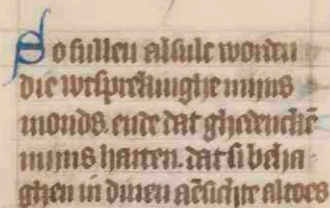 So sullen alsulc worden
die wtsprekinghe mijns
monds. ende dat ghedenckē
mijns harten. dat si beha
ghen in dinen aēsichte altoes